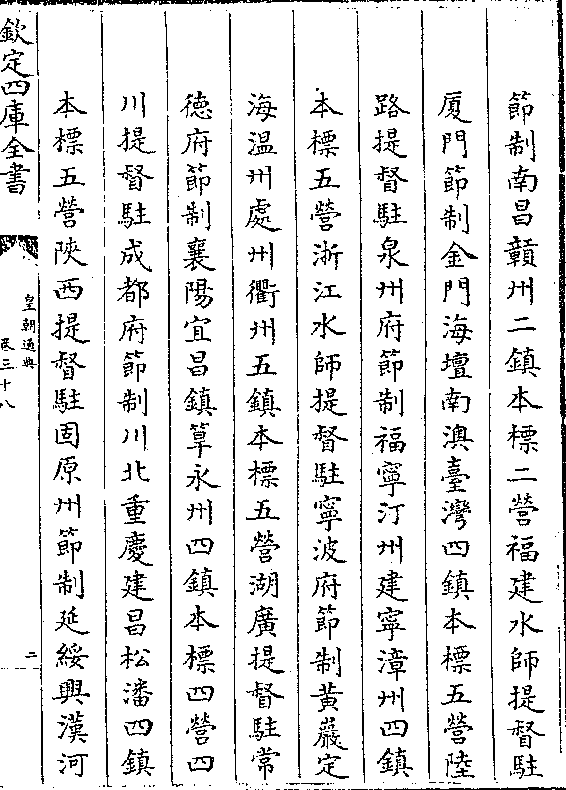 節制南昌贛州二鎮本標二營福建水師提督駐
厦門節制金門海壇南澳臺灣四鎮本標五營陸
路提督駐泉州府節制福寧汀州建寧漳州四鎮
本標五營浙江水師提督駐寧波府節制黃巖定
海温州處州衢州五鎮本標五營湖廣提督駐常
徳府節制襄陽宜昌鎮筸永州四鎮本標四營四
川提督駐成都府節制川北重慶建昌松潘四鎮
本標五營陜西提督駐固原州節制延綏興漢河
欽定四庫全書
皇朝通典
卷三十八
二